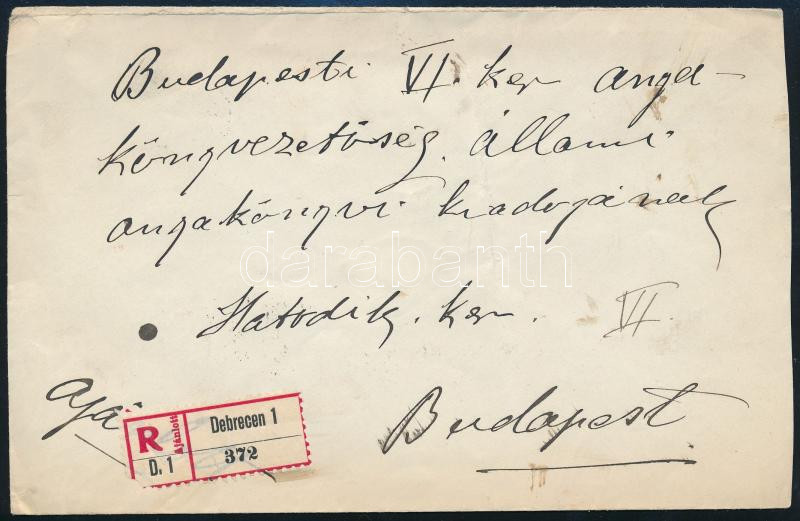 Budapesti VI. ker anya-
könyvezetőség. állami
anyakönyvi kiadójának
Hatodik. ker. VI.
Ajá
R Ajánlott Debrecen 1
D. 1 372
Budapest
darabanth